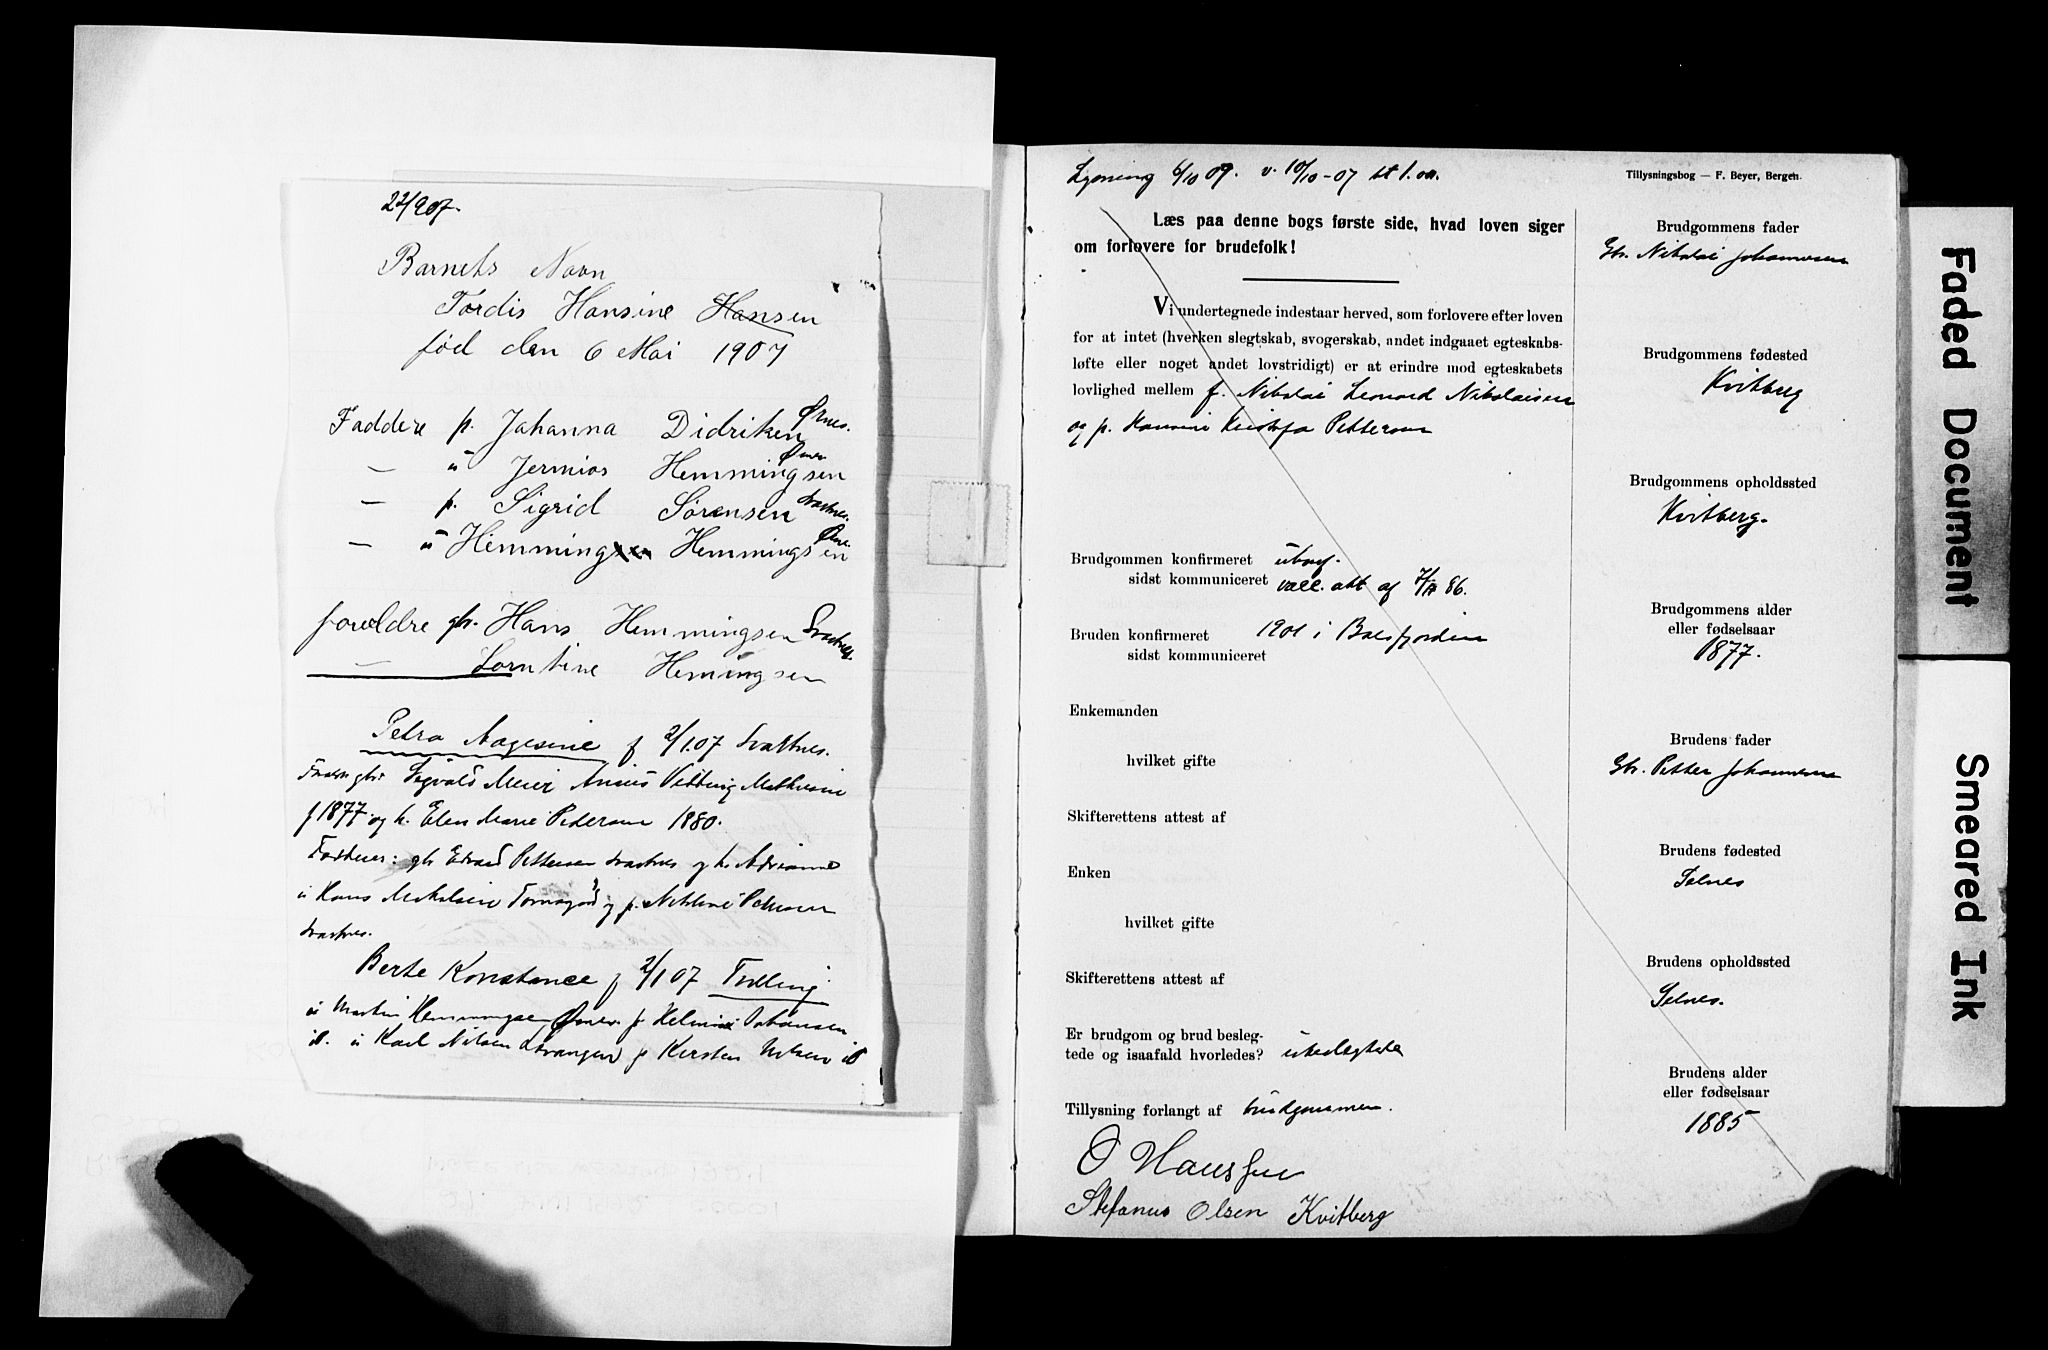 22/907.
Barnets Navn
Tordis Hansine Hansen
fød den 6 Mai 1907
Faddere p. Johanna Didriken Ørnes.
— u Jermias Hemmingsen Ørnes
— p. Sigrid Sørensen Svartnes.
— u Hemming Hemmingsen
forældre gbr. Hans Hemmingsen Svartnes.
— Lorntine Hemingsen
Petra Aagesine f 2/1.07 Svartnes.
f 1877 og h. Elen Marie Pedersen 1880.
Faddere: gbr Edvard Pettersen Svartnes og h. Adrianna
Svartnes.
Berte Konstance f 2/1 07
u Martin Hemmingsen Ørnes p Helmine Johansen
u Karl Nilsen p Kirsten Nilsen
Lysning 6/10 07. v. 10/10-07
Tillysningsbog — F. Beyer, Bergen.
Læs paa denne bogs første side, hvad loven siger
om forlovere for brudefolk!
Vi undertegnede indestaar herved, som forlovere efter loven
for at intet (hverken slegtskab, svogerskab, andet indgaaet egteskabs-
løfte eller noget andet lovstridigt) er at erindre mod egteskabets
lovlighed mellem f. Nikolai Leonard Nikolaisen
og p. Hansine Kristofa Pettersen
Brudgommen konfirmeret ubesf.
sidst kommuniceret vacc. att af 86.
Bruden konfirmeret 1901 i Balsfjorden
sidst kommuniceret
Enkemanden
hvilket gifte
Skifterettens attest af
Enken
hvilket gifte
Skifterettens attest af
Er brudgom og brud besleg-
tede og isaafald hvorledes? ubeslegtede
Tillysning forlangt af brudgommen.
O Hanssen
Stefanus Olsen Kvitberg
Brudgommens fader
Gbr. Nikolai Johannesen
Brudgommens fødested
Kvitberg
Brudgommens opholdssted
Kvitberg.
Brudgommens alder
eller fødselsaar
1877.
Brudens fader
Gbr. Petter Johannesen
Brudens fødested
Selnes
Brudens opholdssted
Selnes.
Brudens alder
eller fødselsaar
1885
Faded Document
Smeared Ink